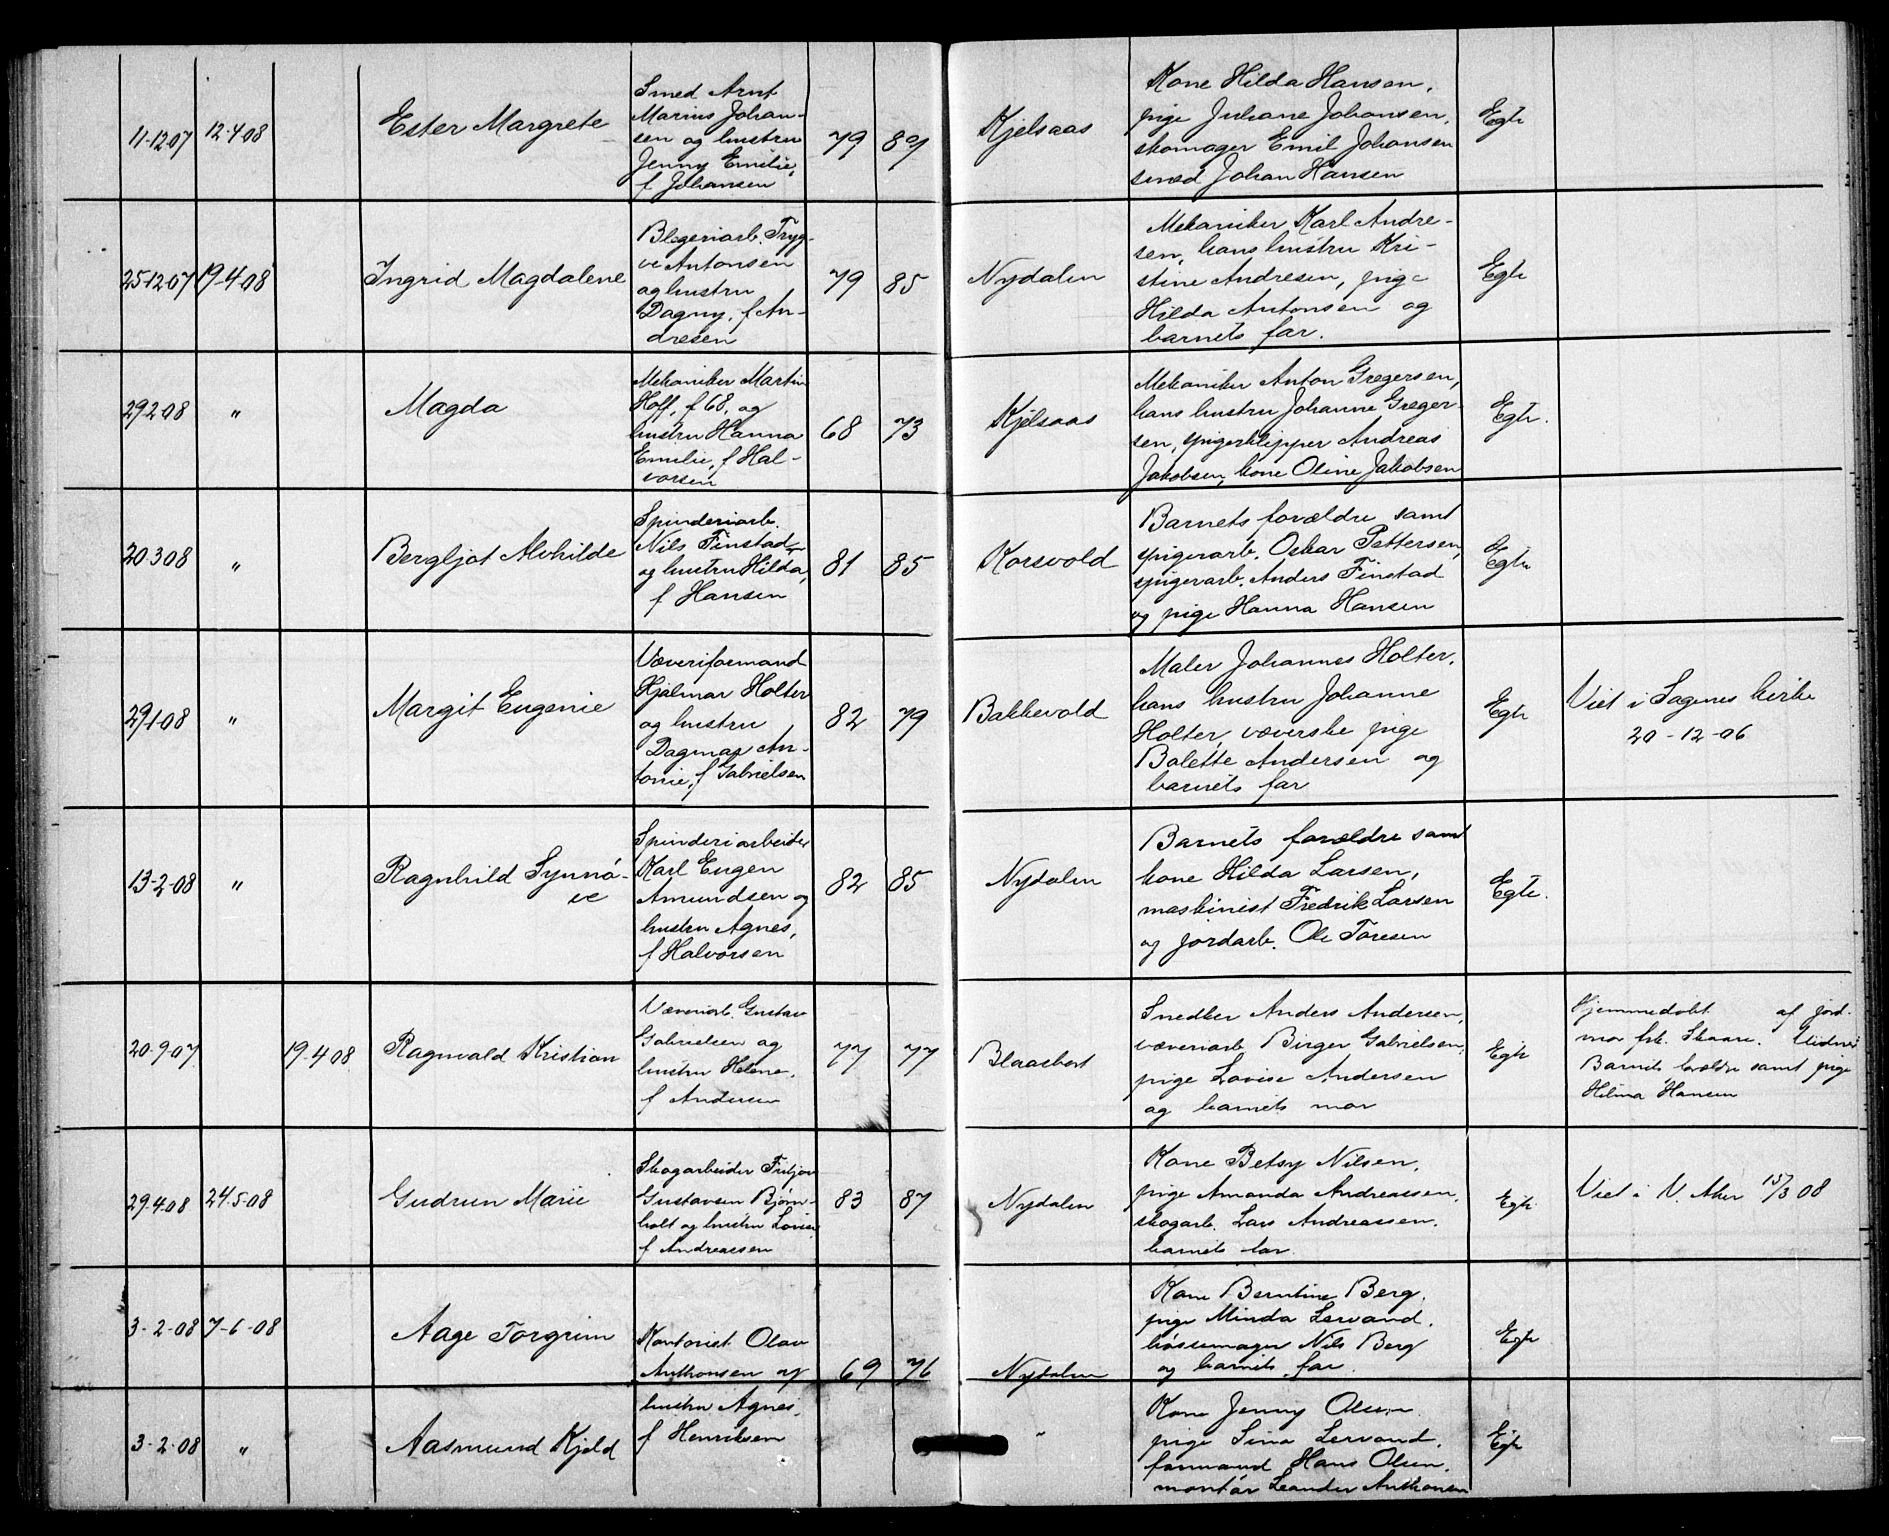 11-12 07 12-4 08 Ester Margrete
Smed Arnt
Marius Johan-
sen og hustru
Jenny Emilie,
f Johansen
79 89 Kjelsaas
Kone Hilda Hansen,
pige Juliane Johansen,
skomager Emil Johansen
smed Johan Hansen
Egte
25-12 07 19-4-08 Ingrid Magdalene
Blegeriarb. Tryg-
ve Antonsen
og hustru
Dagny, f An-
dresen
79 85 Nydalen
Mekaniker Karl Andre-
sen, hans hustru Kri-
stine Andresen, pige
Hilda Antonsen og
barnets far.
Egte
29 2-08 " Magda
Mekaniker Martin
Hoff, f 68, og
hustru Hanna
Emilie, f Hal-
vorsen
68 73 Kjelsaas
Mekaniker Anton Gregersen,
hans hustru Johanne Greger-
sen, spigerklipper Andreas
Jakobsen, kone Oline Jakobsen
Egte.
20 3 08 " Bergljot Alvhilde
Spinderiarb.
Nils Finstad
og hustru Hilda,
f Hansen
81 85 Korsvold
Barnets forældre samt
spigerarb. Oskar Pettersen,
spigerarb. Anders Finstad
og pige Hanna Hansen
Egte
29-1-08 " Margit Eugenie
Væveriformand
Hjalmar Holter
og hustru
Dagmar An-
tonie, f Gabrielsen
82 79 Bakkevold
Maler Johannes Holter,
hans hustru Johanne
Holter væverske pige
Bolette Andersen og
barnets far
Egte
Viet i Sagenes kirke
20-12-06
13-2-08 " Ragnhild Synnø-
ve
Spinderiarbeider
Karl Eugen
Amundsen og
hustru Agnes,
f Halvorsen
82 85 Nydalen
Barnets forældre samt
kone Hilda Larsen,
maskinist Fredrik Larsen
og jordarb. Ole Toresen
Egte.
20-9-07 19-4 08 Ragnvald Kristian
Væveriarb. Gustav
Gabrielsen og
hustru Helene,
f Andersen
77 77 Blaasbort
Snedker Anders Andersen,
væveriarb Birger Gabrielsen,
pige Lovise Andersen
og barnets mor
Egte
Hjemmedøbt af jord-
mor frk. Skaare. Vidner
Barnets forældre samt pige
Hilma Hansen
29-4-08 24-5-08 Gudrun Marie
Skogarbeider Fritjov
Gustavsen Bjørn-
holt og hustru Lovise
f Andreassen
83 87 Nydalen
Kone Betsy Nilsen,
pige Amanda Andreassen,
skogarb. Lars Andreassen,
barnets far
Egte
Viet i V. Aker 15/3 08
3-2-08 7-6-08 Aage Torgrim
Kontorist Olav
Anthonsen og
69 76 Nydalen
Kone Berntine Berg,
pige Minda Lervand,
bøssemager Nils Berg
og barnets far.
Egte
3-2-08 " Aasmund Kjeld
hustru Agnes,
f Henriksen
"
Kone Jenny Olsen
pige Sina Lervand,
formand Hans Olsen,
montør Leander Anthonsen
Egte